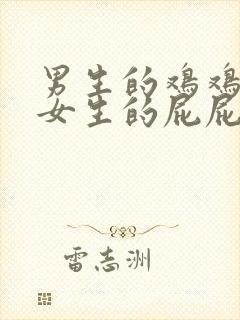 男生的鸡鸡
女生的屁屁
雷志洲